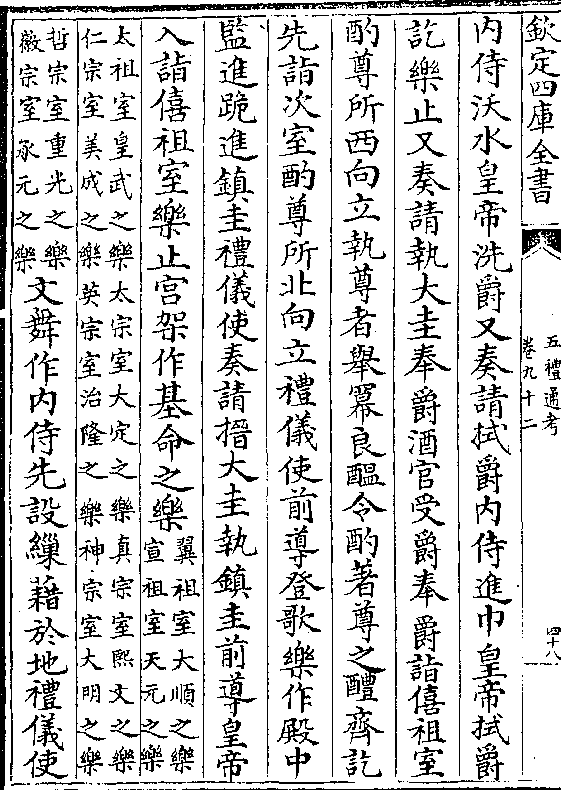 欽定四庫全書
五禮通考
卷九十二
四十八
内侍沃水皇帝洗爵又奏請拭爵内侍進巾皇帝拭爵
訖樂止又奏請執大圭奉爵酒官受爵奉爵詣僖祖室
酌尊所西向立執尊者舉冪良醖令酌著尊之醴齊訖
先詣次室酌尊所北向立禮儀使前導登歌樂作殿中
監進跪進鎮圭禮儀使奏請搢大圭執鎮圭前導皇帝
入詣僖祖室樂止宫架作基命之樂
翼祖室大順之樂
宣祖室天元之樂
太祖室皇武之樂太宗室大定之樂真宗室熙文之樂
仁宗室美成之樂英宗室治隆之樂神宗室大明之樂
哲宗室重光之樂
徽宗室承元之樂
文舞作内侍先設繅藉於地禮儀使